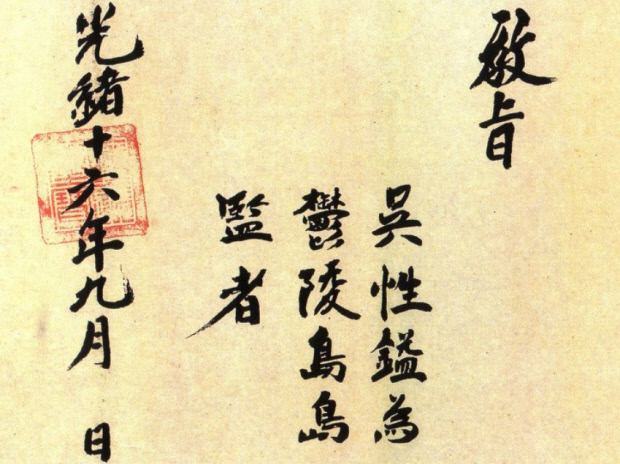 敎旨
吳性鎰為
鬱陵島島
監者
光緖十六年九月 日